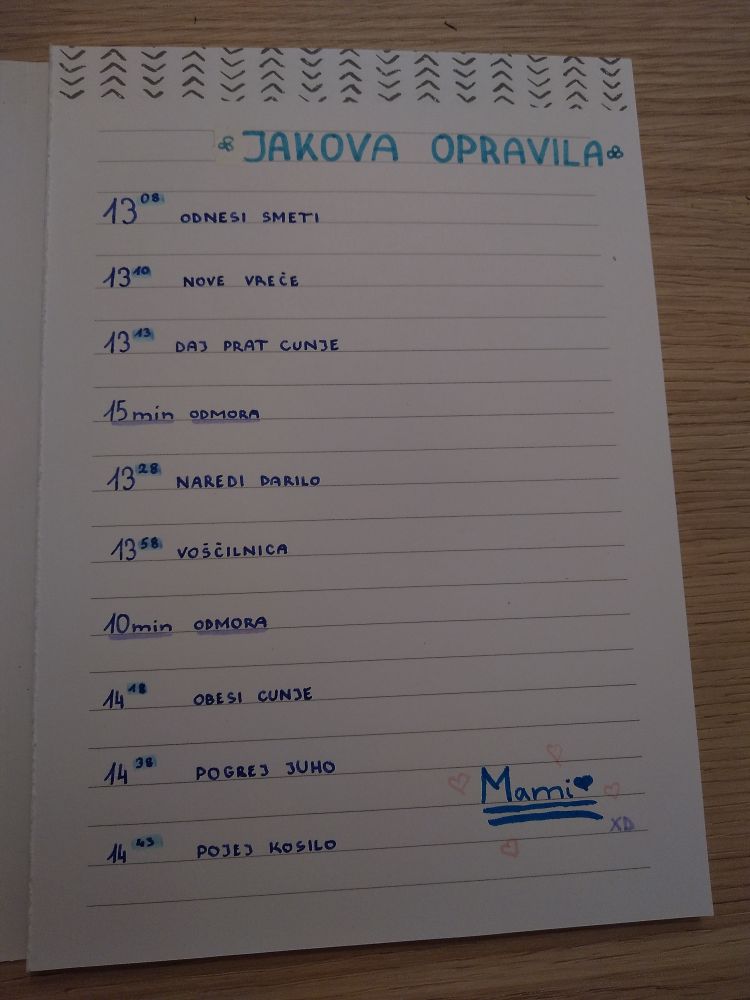 JAKOVA OPRAVILA
13 08 ODNESI SMETI
13 10 NOVE VREČE
13 13 DAJ PRAT CUNJE
15 min ODMORA
13 28 NAREDI DARILO
13 58 VOŠČILNICA
10 min ODMORA
14 18 OBESI CUNJE
14 38 POGREJ JUHO
14 43 POJEJ KOSILO
Mami
XD